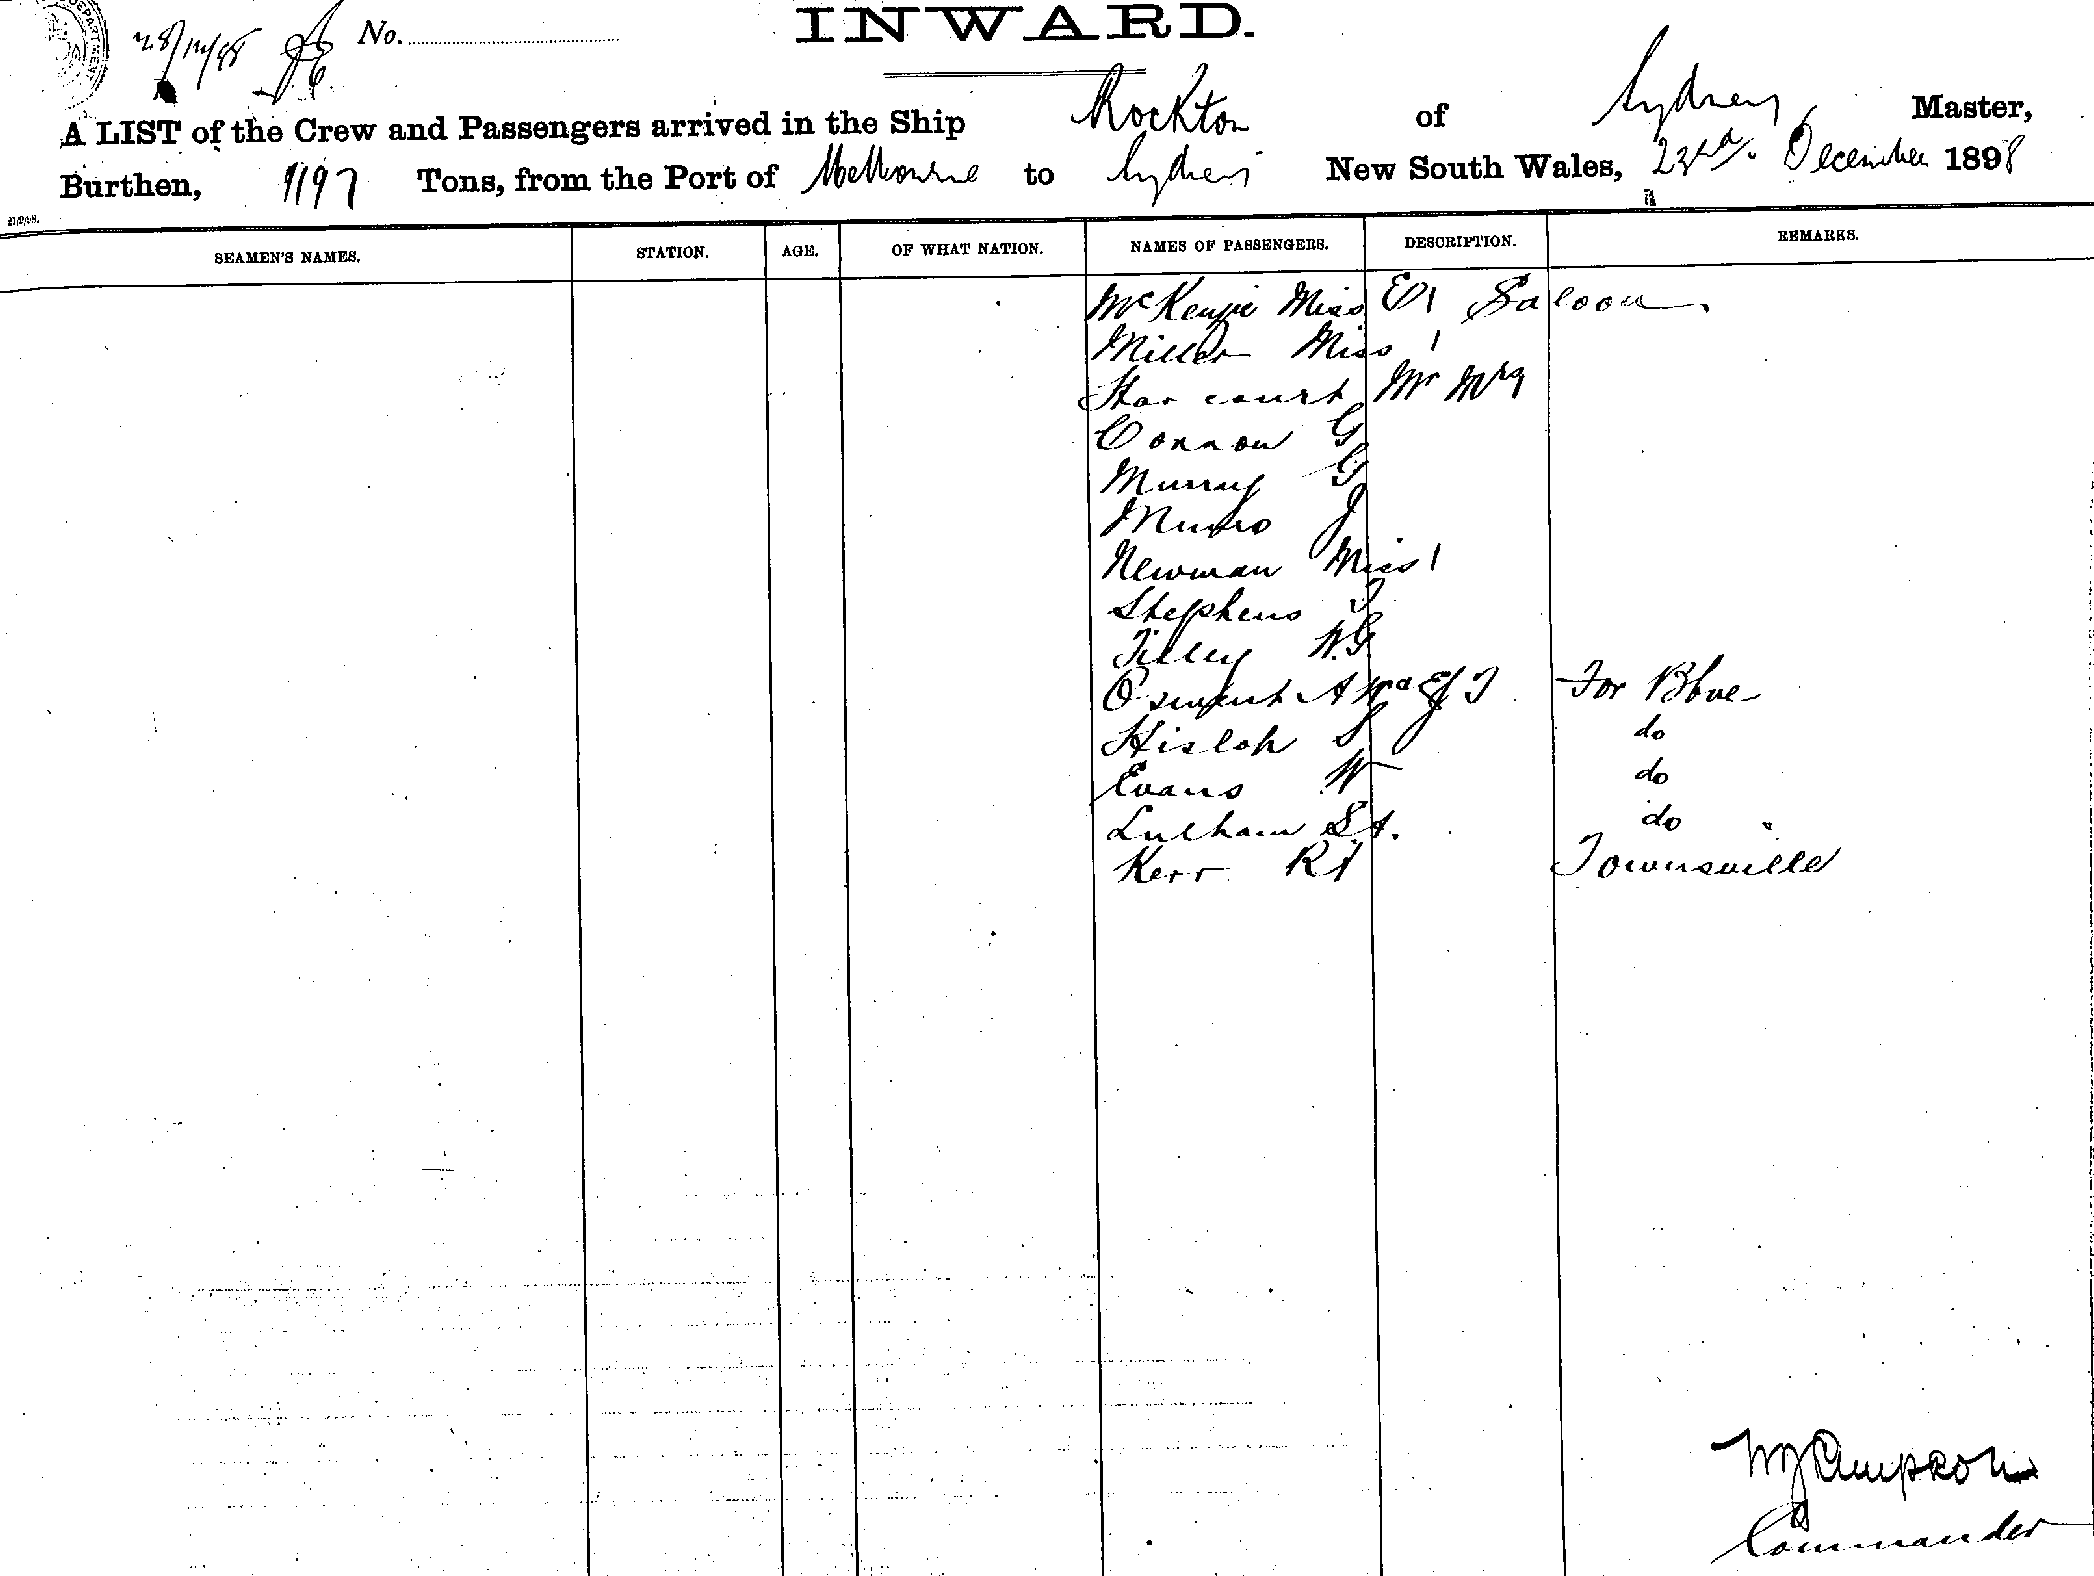 28/12/98 No.
INWARD.
A LIST of the Crew and Passengers arrived in the Ship Rockton of Sydney, Master,
Burthen, 1197 Tons, from the Port of Melbourne to Sydney New South Wales, 23rd December 1898
SEAMEN'S NAMES. STATION. AGE. OF WHAT NATION. NAMES OF PASSENGERS. DESCRIPTION. REMARKS.
McKenzie Miss E 1 Saloon
Miller Miss 1
Harcourt Mr Mrs
Connow G
Murray G
Munro J
Newman Miss 1
Stephens J
Tilley W.G
Osment A For Bbne
Hislop S do
Evans W do
Lulham S A. do "
Kerr R Townsville
Commander